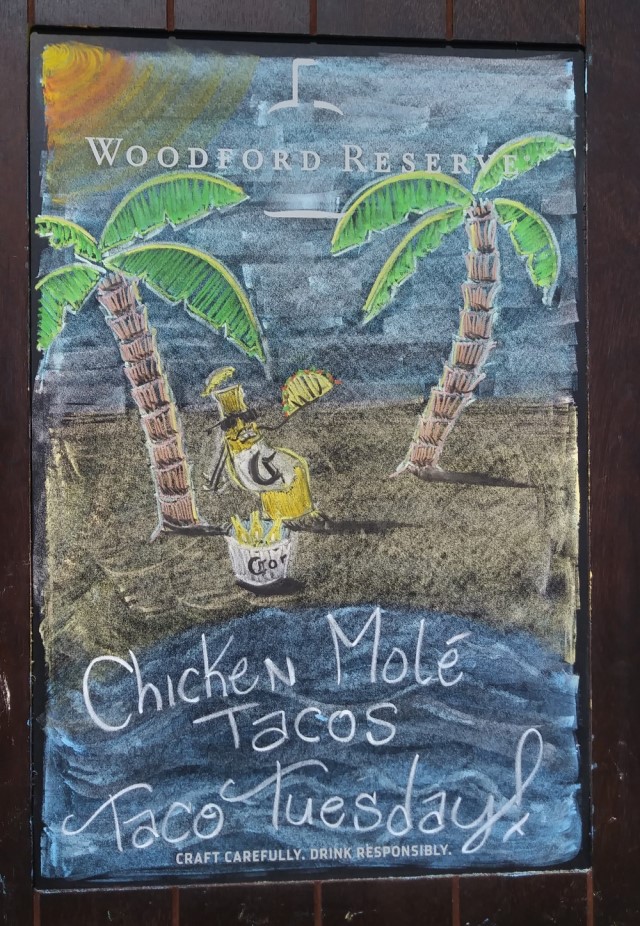 WOODFORD RESERVE
Chicken Molé
Tacos
Taco Tuesday!
CRAFT CAREFULLY. DRINK RESPONSIBLY.